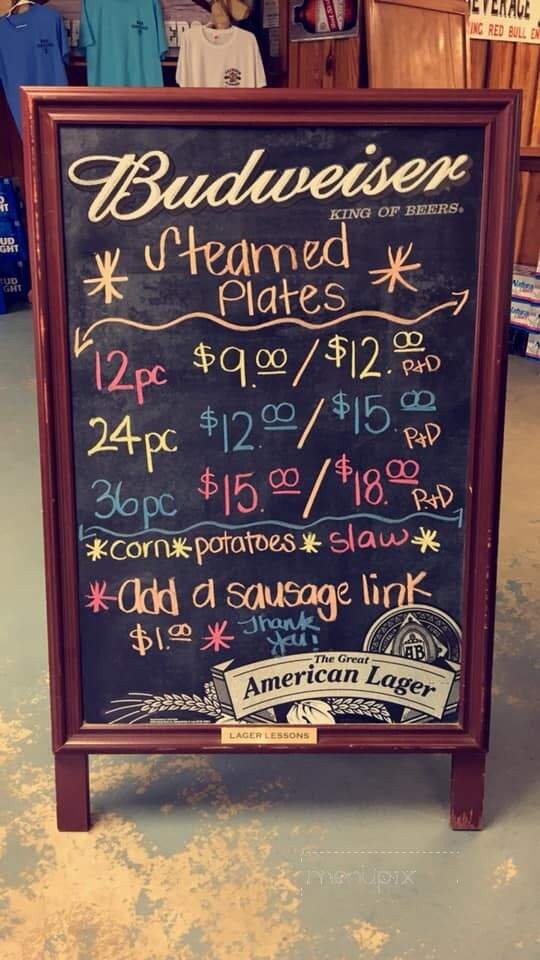 ING RED BULL EN
Budweiser
KING OF BEERS.
* Steamed *
Plates
12pc $9.00 / $12.00 P+D
24pc $12.00 / $15.00 P+D
36pc $15.00 / $18.00 P+D
*corn*potatoes* slaw*
*add a sausage link
$1.00 * Thank
you!
The Great
AB
American Lager
LAGER LESSONS
menupix